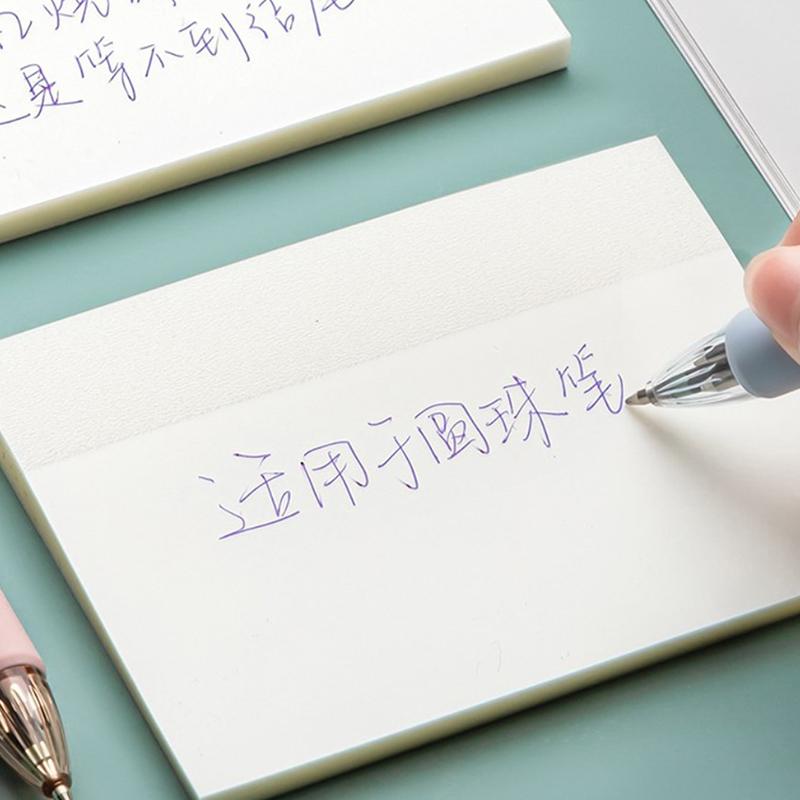 烧
是等不到结尾
适用于圆珠笔